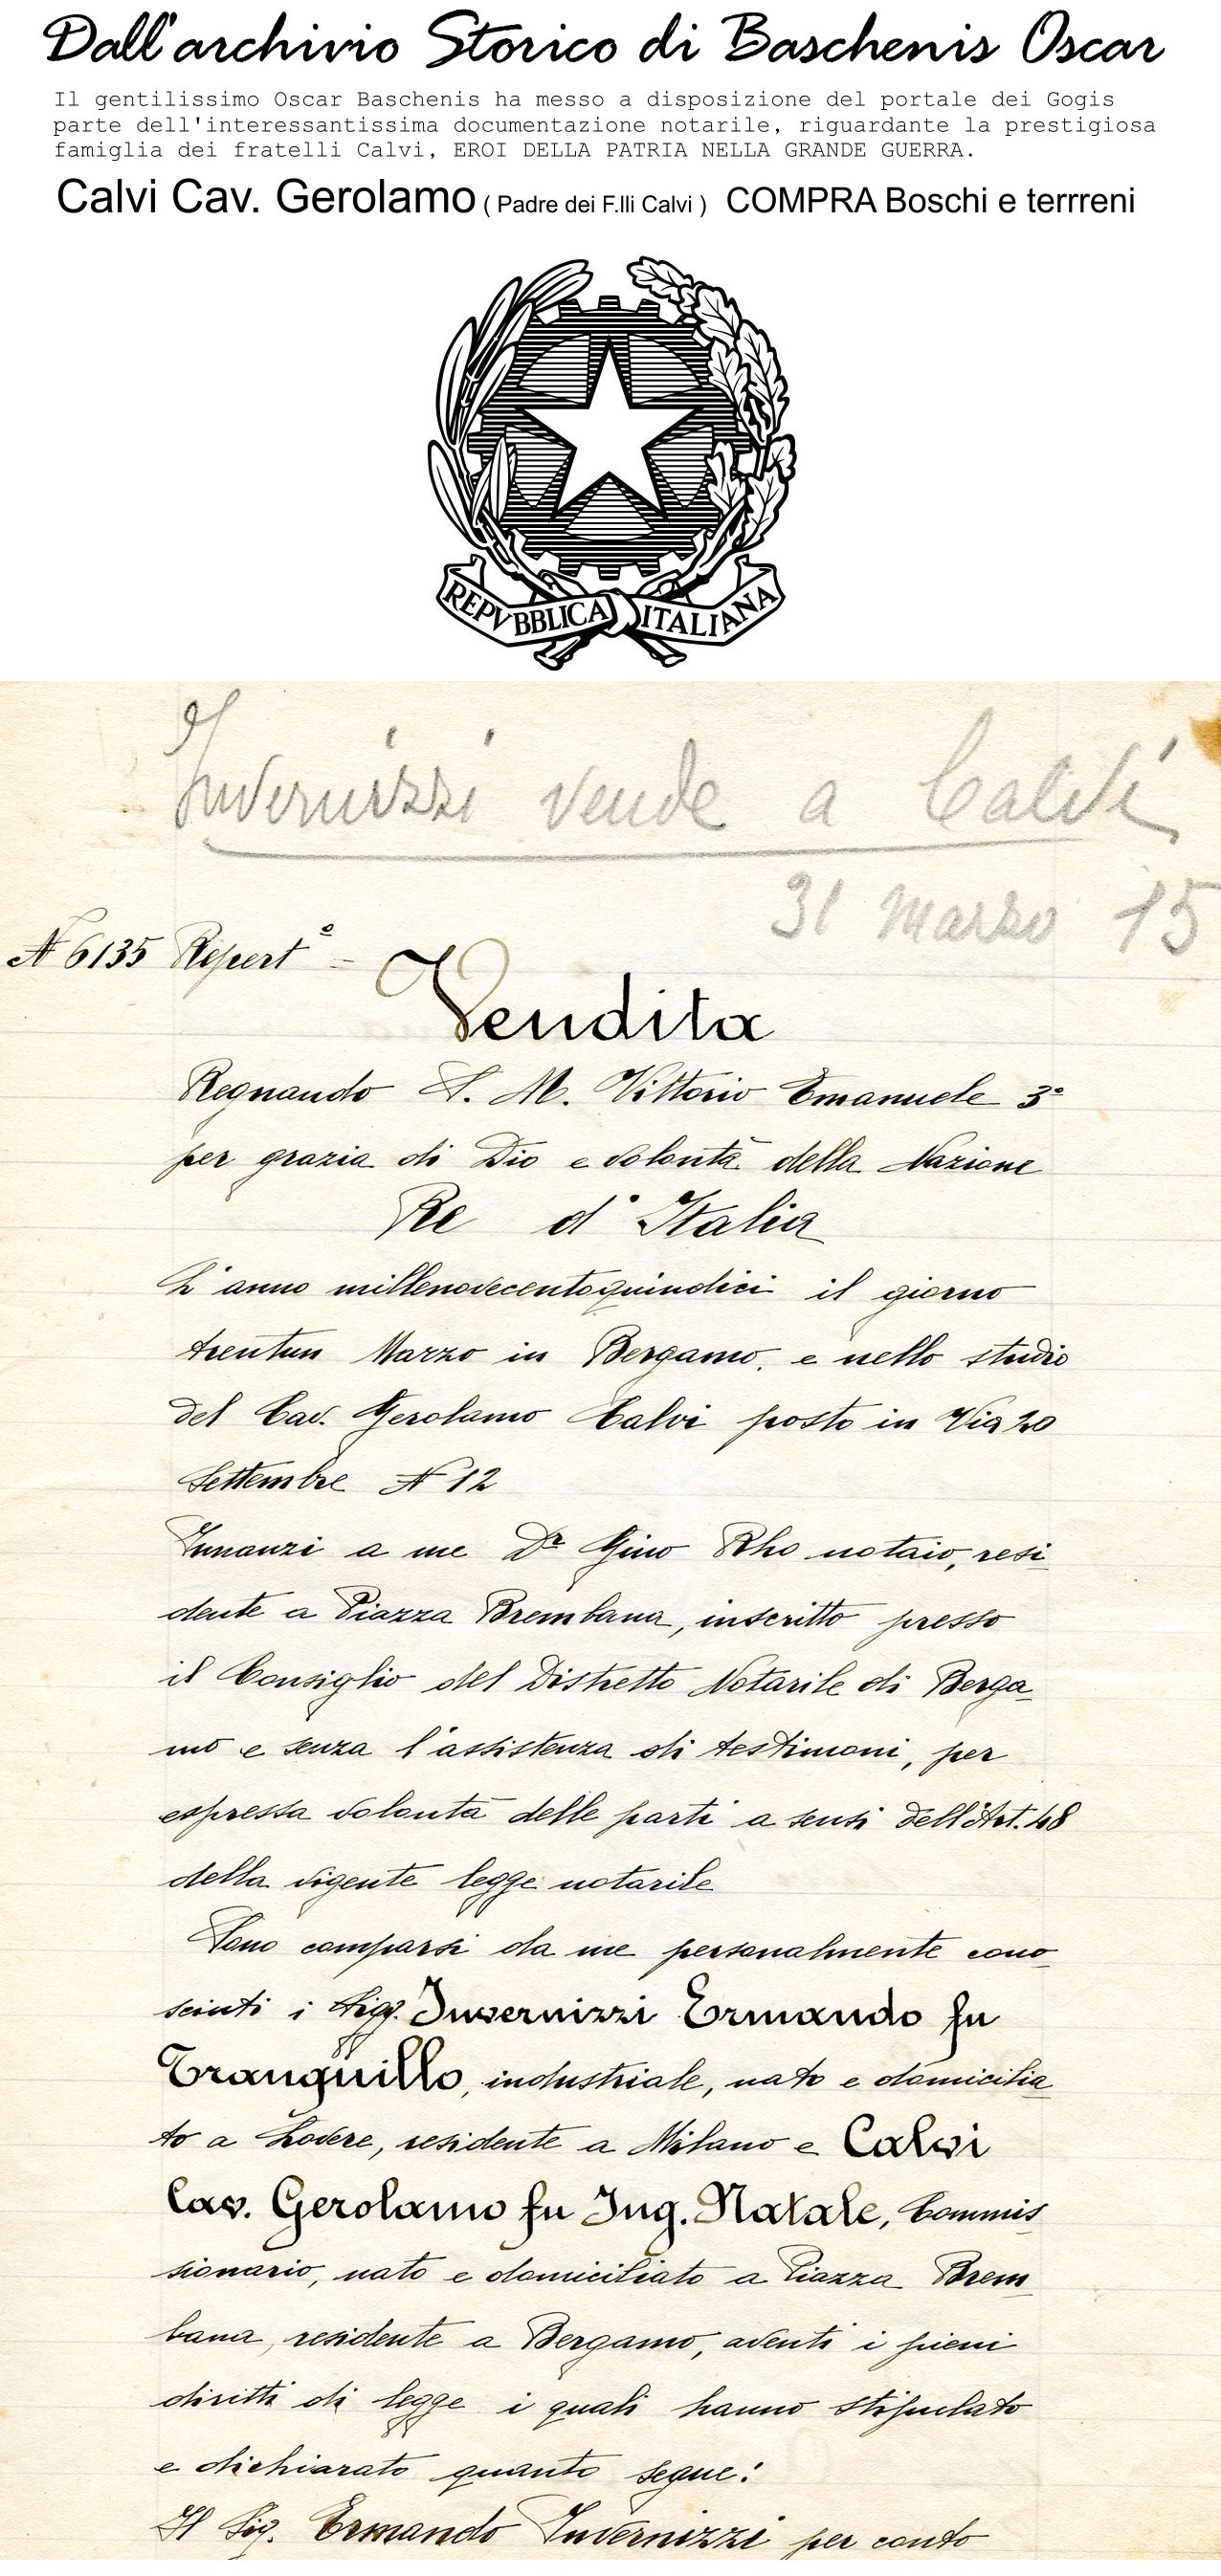 Dall'archivio Storico di Baschenis Oscar
Il gentilissimo Oscar Baschenis ha messo a disposizione del portale dei Gogis
parte dell'interessantissima documentazione notarile, riguardante la prestigiosa
famiglia dei fratelli Calvi, EROI DELLA PATRIA NELLA GRANDE GUERRA.
Calvi Cav. Gerolamo ( Padre dei F.lli Calvi ) COMPRA Boschi e terrreni
REPVBBLICA ITALIANA
Invernizzi vende a Calvi
31 Marzo 15
N 6135 Repert°
Vendita
Regnando S. M. Vittorio Emanuele 3°
per grazia di Dio e volontà della Nazione
Re d'Italia
L'anno millenovecentoquindici il giorno
trentun Marzo in Bergamo, e nello studio
del Cav. Gerolamo Calvi posto in Via 20
Settembre N 12
Innanzi a me Dr Gino Rho notaio, resi
dente a Piazza Brembana, inscritto presso
il Consiglio del Distretto Notarile di Berga
mo e senza l'assistenza di testimoni, per
espressa volontà delle parti a sensi dell'Art. 48
della vigente legge notarile
Sono comparsi da me personalmente cono
sciuti i Sigg. Invernizzi Ermando fu
Tranquillo, industriale, nato e domicilia
to a Lovere, residente a Milano e Calvi
Cav. Gerolamo fu Ing. Natale, Commis
sionario, nato e domiciliato a Piazza Brem
bana, residente a Bergamo, aventi i pieni
diritti di legge i quali hanno stipulato
e dichiarato quanto segue:
Il Sig. Ermando Invernizzi per conto